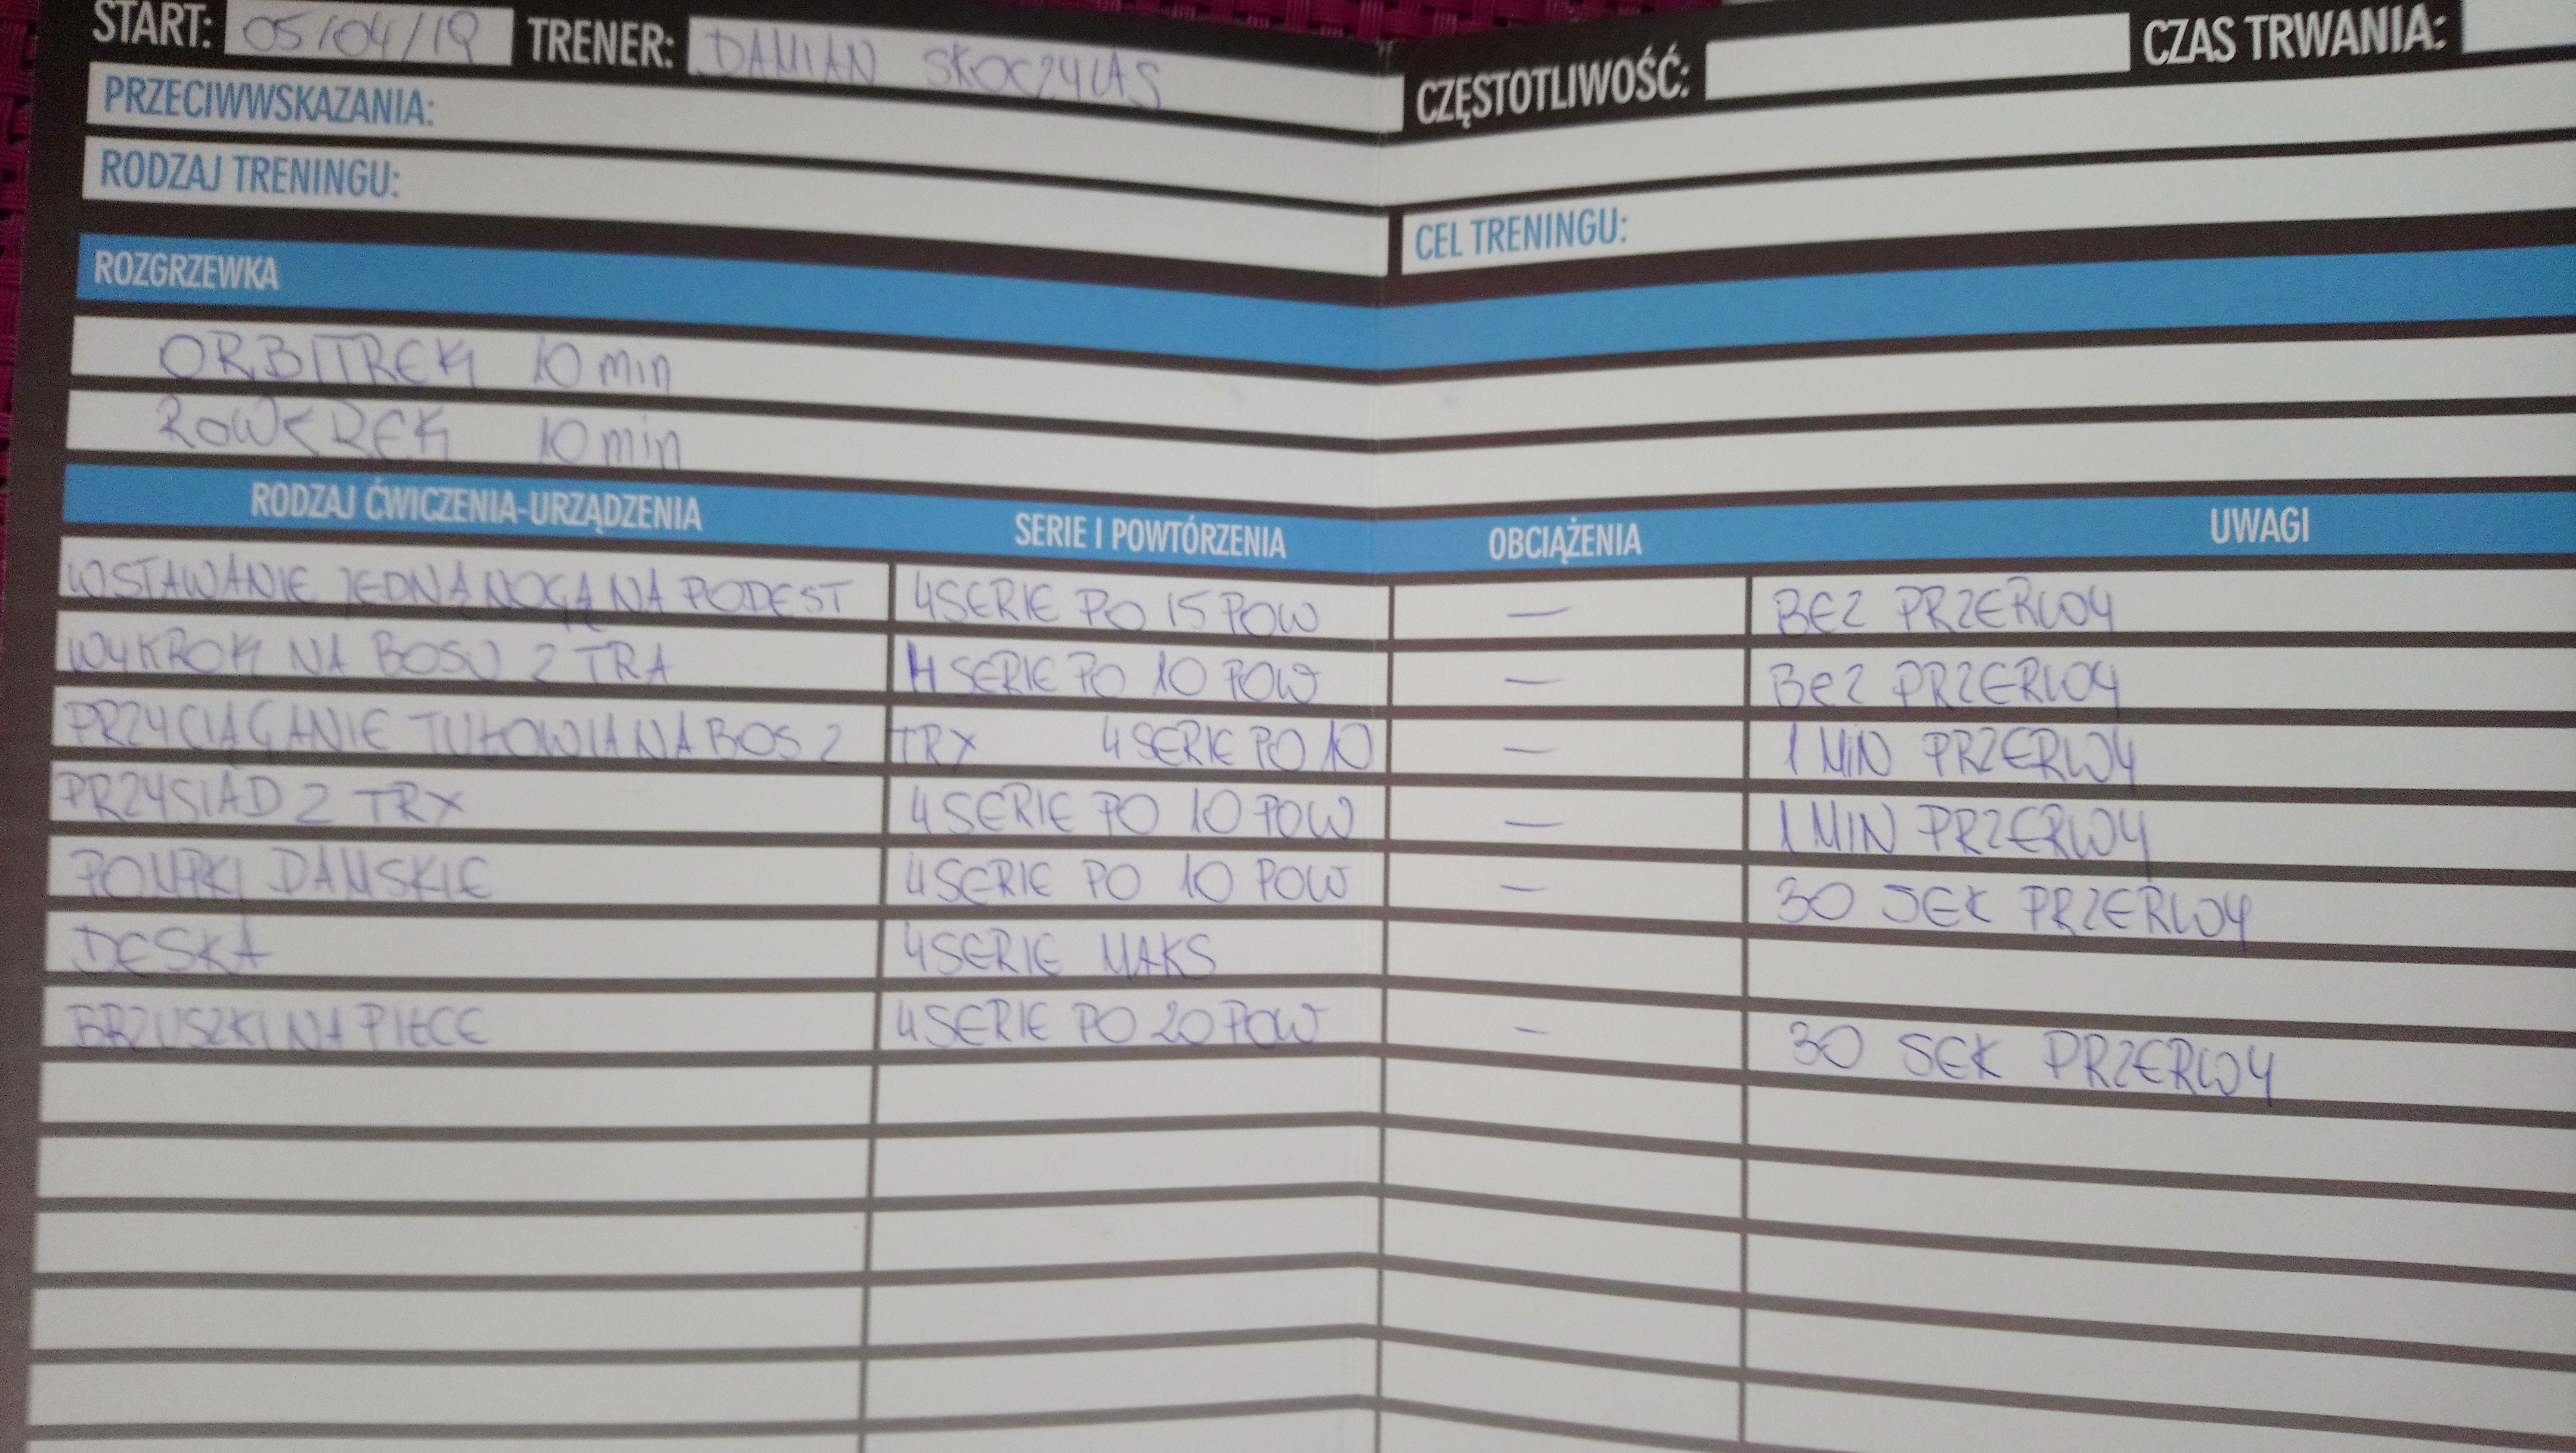 START: 05/04/19 TRENER: DAMIAN SKOCZYLAS CZĘSTOTLIWOŚĆ: CZAS TRWANIA:
PRZECIWWSKAZANIA:
RODZAJ TRENINGU: CEL TRENINGU:
ROZGRZEWKA
ORBITREK 10 min
ROWEREK 10 min
RODZAJ ĆWICZENIA-URZĄDZENIA SERIE I POWTÓRZENIA OBCIĄŻENIA UWAGI
WSTAWANIE JEDNĄ NOGĄ NA PODEST 4 SERIE PO 15 POW — BEZ PRZERWY
WYKROKI NA BOSU Z TRA 4 SERIE PO 10 POW — BEZ PRZERWY
PRZYCIĄGANIE TUŁOWIA NA BOS Z TRX 4 SERIE PO 10 — 1 MIN PRZERWY
PRZYSIAD Z TRX 4 SERIE PO 10 POW — 1 MIN PRZERWY
POMPKI DAMSKIE 4 SERIE PO 10 POW — 30 SEK PRZERWY
DESKA 4 SERIE MAKS
BRZUSZKI NA PIŁCE 4 SERIE PO 20 POW — 30 SEK PRZERWY